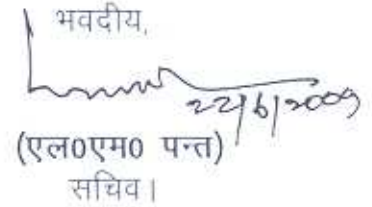 भवदीय,
22/6/2009
(एल0एम0 पन्त)
सचिव।